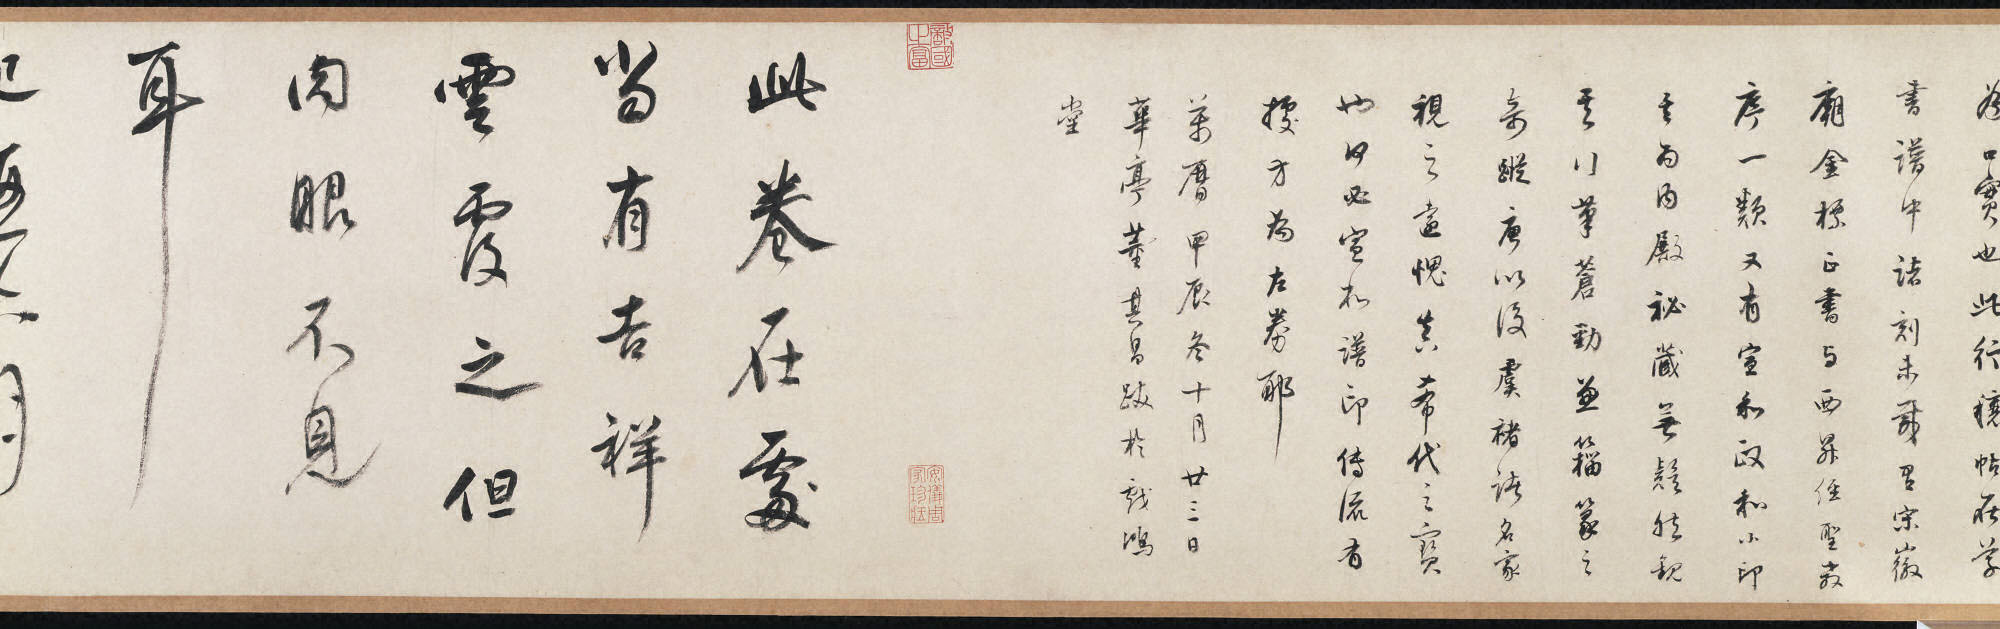 為口實也此行穰帖在學
書譜中諸刻未載有宋徽
廟金標正書与西昇經聖教
序一類又有宣和政和小印
其為內殿秘藏無疑然觀
其行筆蒼勁兼籀篆之
奇蹤唐以後虞褚諸名家
視之遠愧真希代之寶
也何必宣和譜印傳流有
據方為左券耶
萬曆甲辰冬十月廿三日
華亭董其昌跋於戲鴻
堂
此卷在處
當有吉祥
雲覆之但
肉眼不見
耳